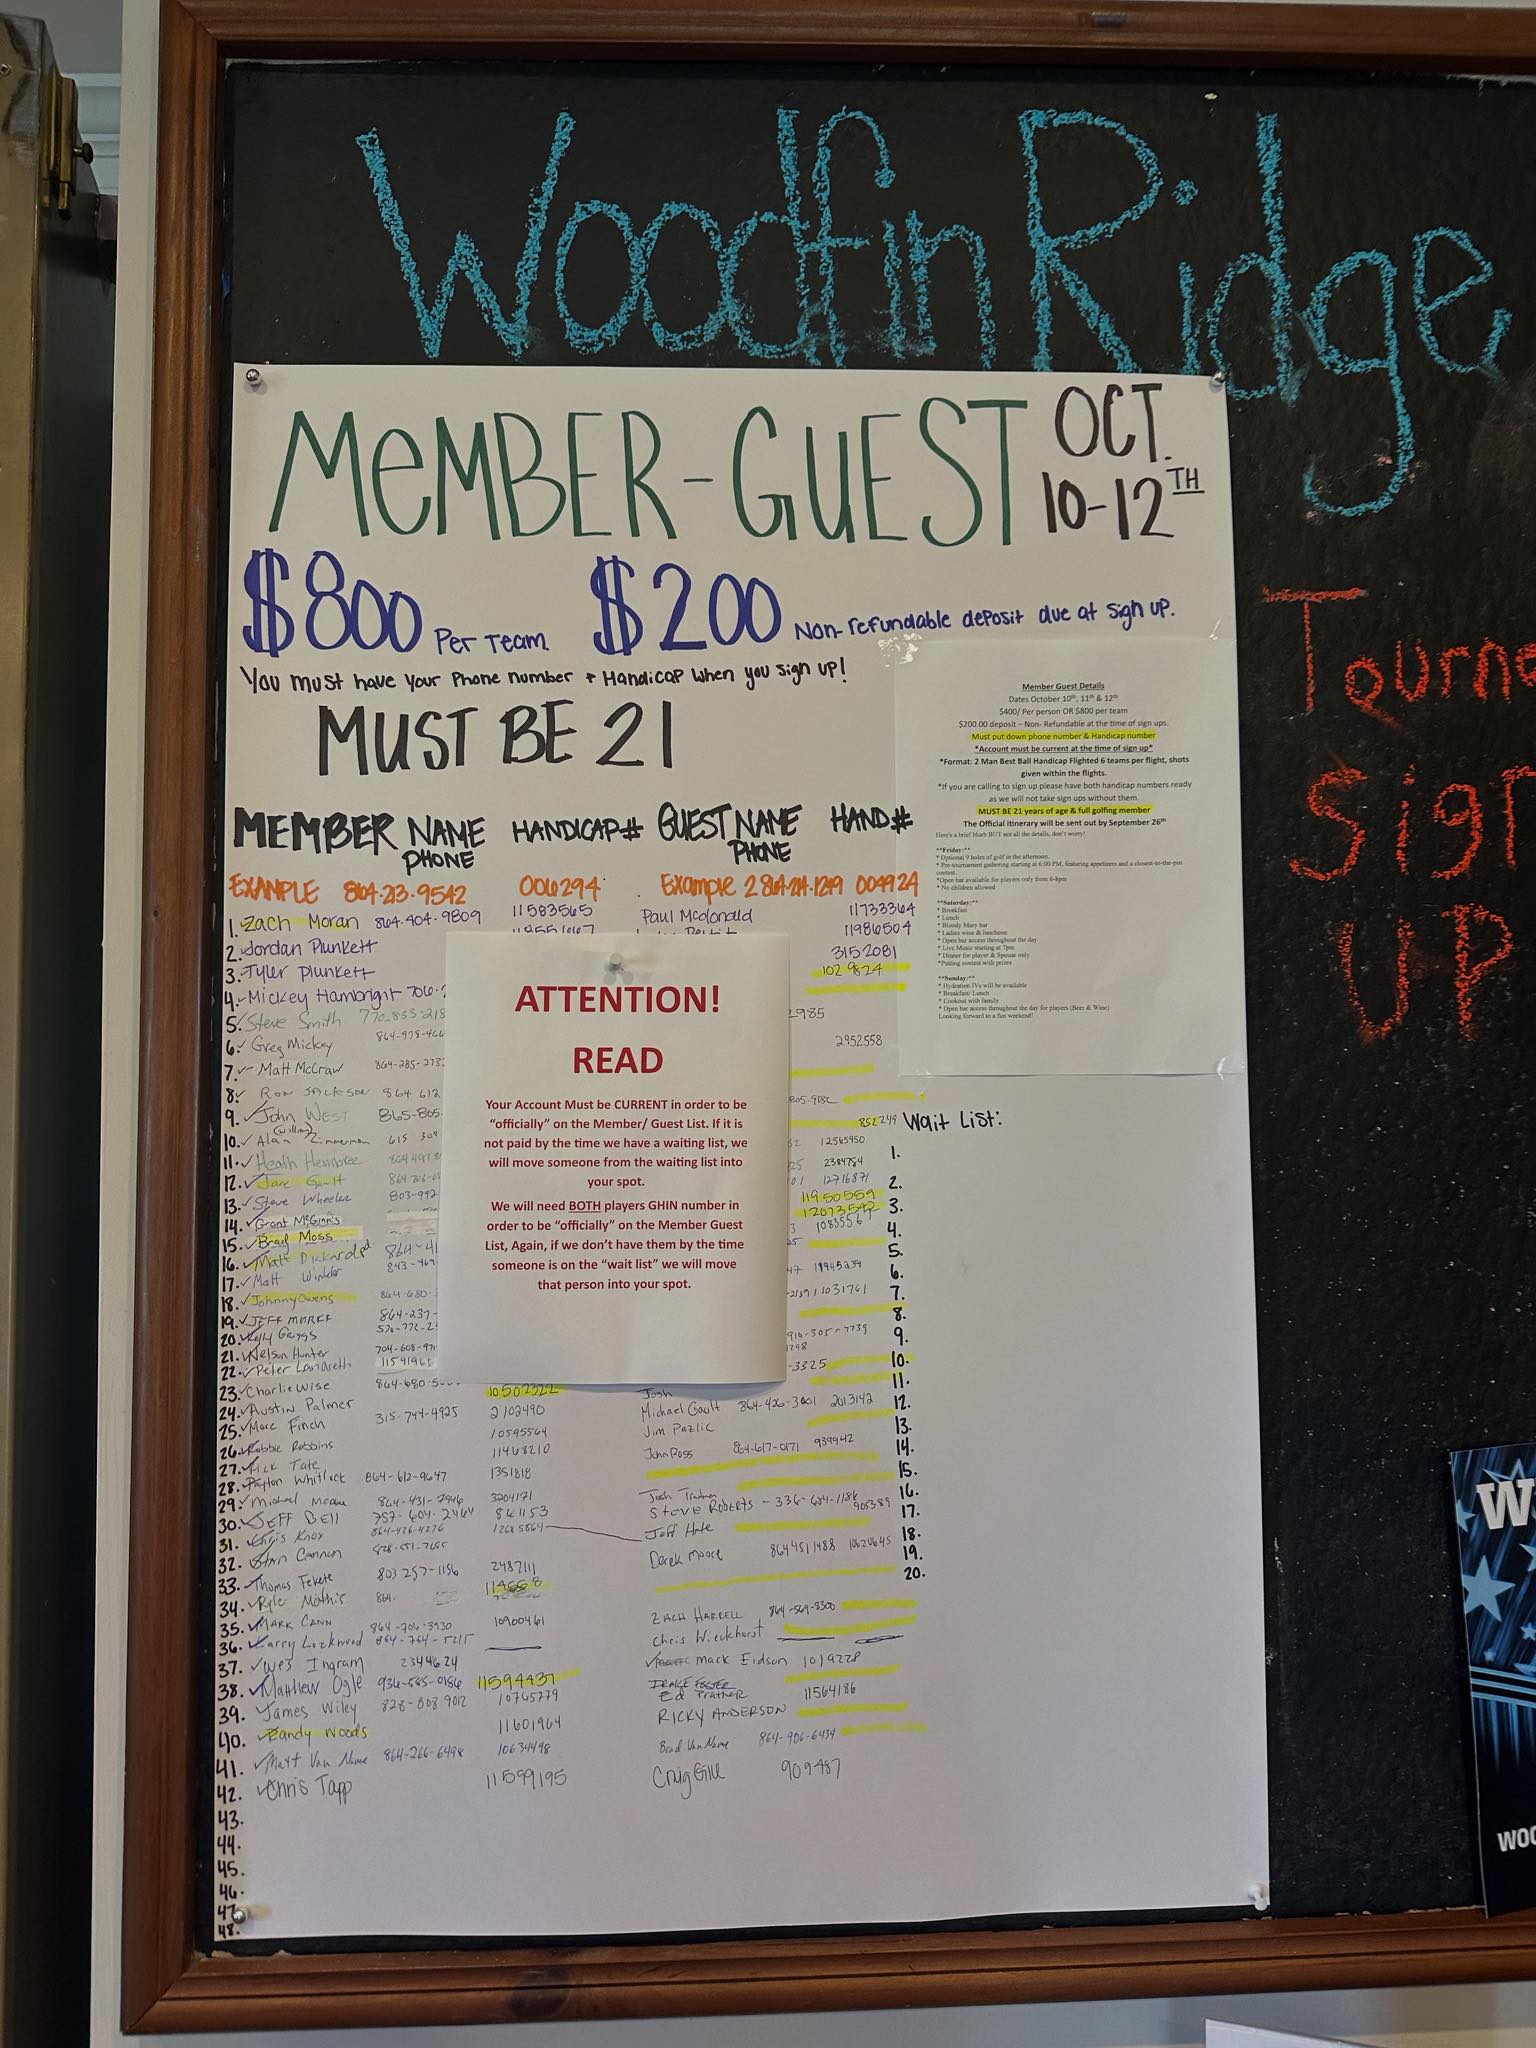 Woodfin Ridge
MEMBER-GUEST OCT. 10-12TH
$800 Per Team $200 Non-refundable deposit due at sign up.
You must have your Phone number + Handicap when you sign up!
MUST BE 21
Tourna
Sign
UP
Member Guest Details
Dates October 10th, 11th & 12th
$400/ Per person OR $800 per team
$200.00 deposit – Non- Refundable at the time of sign ups.
Must put down phone number & Handicap number
*Account must be current at the time of sign up*
*Format: 2 Man Best Ball Handicap Flighted 6 teams per flight, shots
given within the flights.
*If you are calling to sign up please have both handicap numbers ready
as we will not take sign ups without them.
MUST BE 21 years of age & full golfing member
The Official itinerary will be sent out by September 26th
Here's a brief blurb BUT not all the details, don't worry!
**Friday:**
* Optional 9 holes of golf in the afternoon.
* Pre-tournament gathering starting at 6:00 PM, featuring appetizers and a closest-to-the-pin
contest.
*Open bar available for players only from 6-8pm
* No children allowed
**Saturday:**
* Breakfast
* Lunch
* Bloody Mary bar
* Ladies wine & luncheon
* Open bar access throughout the day
* Live Music starting at 7pm
* Dinner for player & Spouse only
*Putting contest with prizes
**Sunday:**
* Hydration IVs will be available
* Breakfast/ Lunch
* Cookout with family
* Open bar access throughout the day for players (Beer & Wine)
Looking forward to a fun weekend!
MEMBER NAME HANDICAP# GUEST NAME HAND#
PHONE PHONE
EXAMPLE 864-23-9542 006294 Example 2 864-214-1249 004924
1. Zach Moran 864-404-9809 11583565 Paul McDonald 11733364
2. Jordan Plunkett 11986504
3. Tyler Plunkett 3152081
4. Mickey Hambright 706- 1029824
5. Steve Smith 770-855-218 2985
6. Greg Mickey 864-978-466 2952558
7. Matt McCraw 864-285-273
8. Ron Jackson 864 612
9. John West 865-805- 852249
10. Alan (William) Zimmerman 615 309 12565950
11. Heath Hembree 2384784
12. Jake Gault 12716871
13. Steve Wheeler 803-992 11950559
14. Grant McGinnis 12073542
15. Brad Moss
16. Matt Dickard 864-41
17. Matt Winkler 843-469 11945239
18. Johnny Owens 864-680- 11031761
19. JEFF MARKE 864-237-
20. Kelly Griggs 570-772-2 910-305-7739
21. Nelson Hunter 704-608-971
22. Peter Landreth 1159196 -3325
23. Charlie Wise 864-680-5 10502322 Josh
24. Austin Palmer 2102490 Michael Gault 864-426-3001 2013142
25. Marc Finch 315-744-4925 10595564 Jim Pazlic
26. Robbie Robbins 11468210 John Ross 864-617-0171 939942
27. Rick Tate
28. Payton Whitlock 864-612-9647 1351818
29. Michael 864-431-7946 3204171 Josh
30. JEFF BELL 757-604-2464 841153 Steve Roberts - 336-684-1186 905389
31. Chris Knox 864-426-4276 12685864 Jeff Hate
32. Stan Cannon 828-551-7655 Derek Moore 8644511488 10620645
33. Thomas Fekete 803 257-1156 2487111
34. Ryler Mathis 864-
35. MARK CANN 864-706-3930 10900461 ZACH HARRELL 864-569-8300
36. Larry Lockwood 864-764-5215 Chris Wieckhorst
37. Wes Ingram 2344624 Mack Eidson 1019228
38. Matthew Ogle 936-585-0186 11594437 DRAKE FOSTER
39. James Wiley 828-808 9012 10765779 Ed Prather 11564186
40. Randy Woods 11601964 RICKY ANDERSON
41. Matt Van Name 864-266-6498 10634498 Brad Van Name 864-906-6434
42. Chris Tapp 11599195 Craig Gill 909487
43.
44.
45.
46.
47.
48.
ATTENTION!
READ
Your Account Must be CURRENT in order to be
"officially" on the Member/ Guest List. If it is
not paid by the time we have a waiting list, we
will move someone from the waiting list into
your spot.
We will need BOTH players GHIN number in
order to be "officially" on the Member Guest
List, Again, if we don't have them by the time
someone is on the "wait list" we will move
that person into your spot.
Wait List:
1.
2.
3.
4.
5.
6.
7.
8.
9.
10.
11.
12.
13.
14.
15.
16.
17.
18.
19.
20.
W
WOO